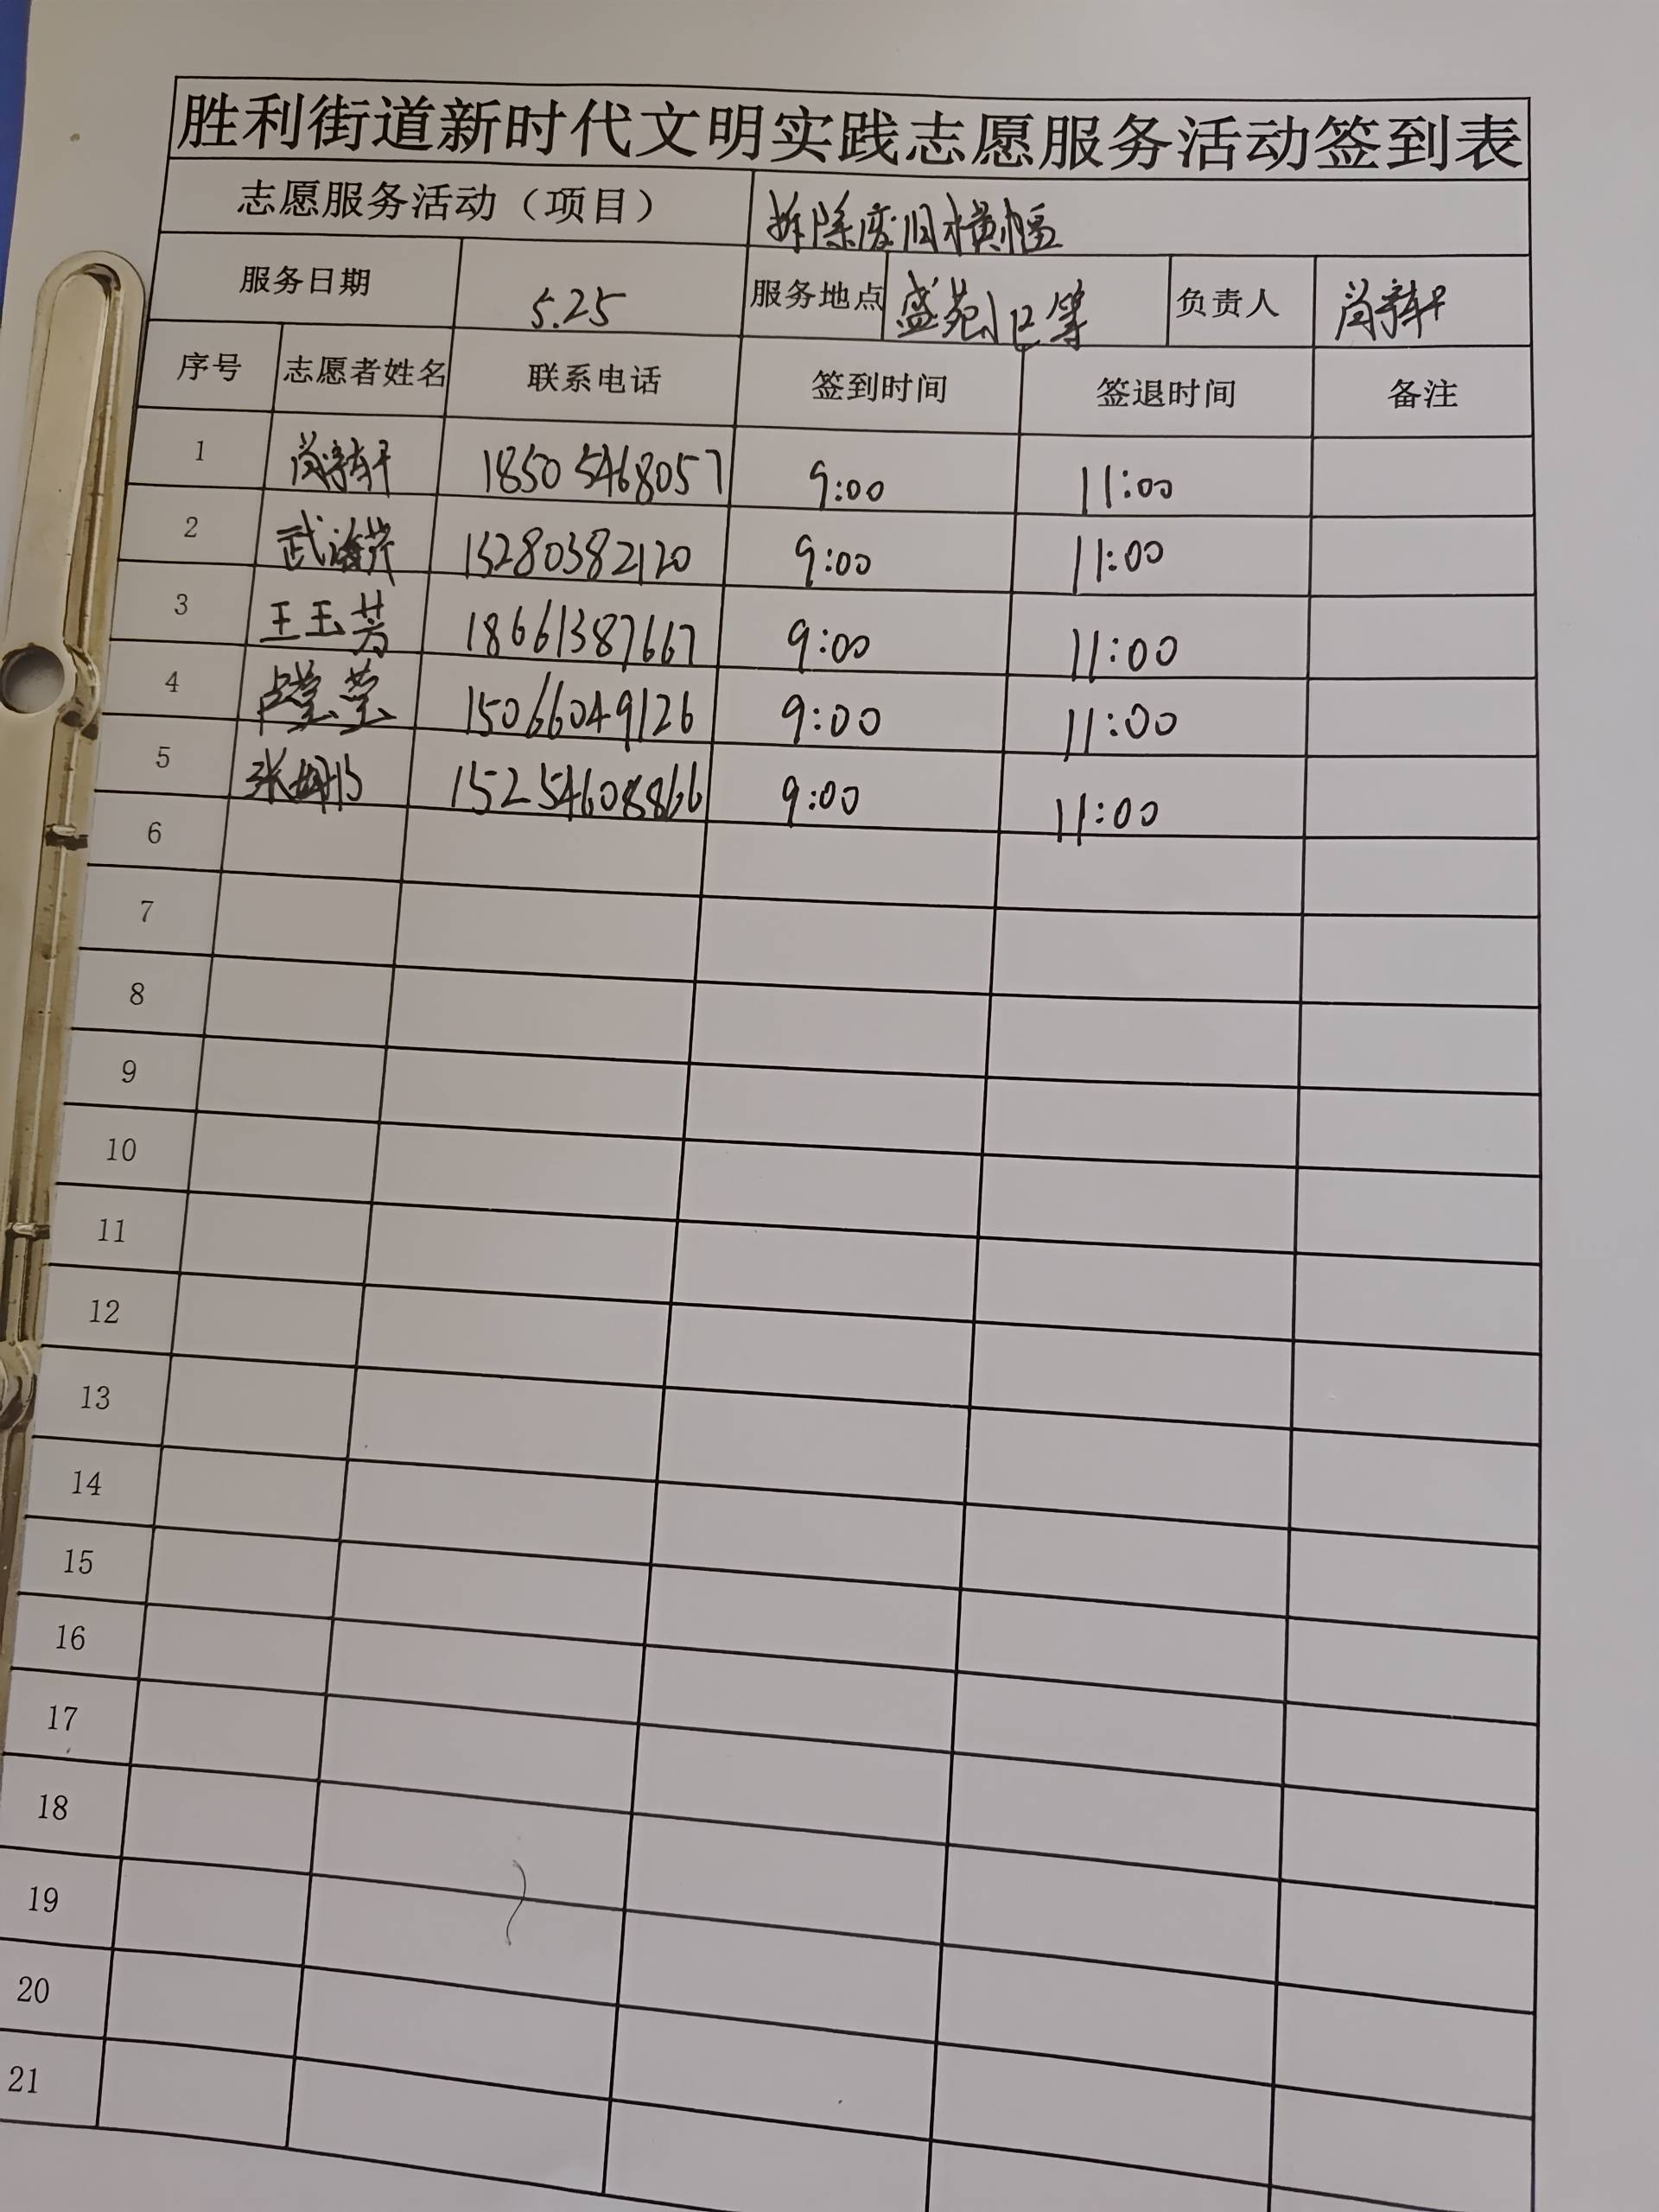 胜利街道新时代文明实践志愿服务活动签到表
志愿服务活动（项目） 拆除废旧横幅
服务日期 5.25 服务地点 盛苑小区等 负责人
序号 志愿者姓名 联系电话 签到时间 签退时间 备注
1 18505468057 9:00 11:00
2 武海芹 13280382120 9:00 11:00
3 王玉芳 18661387667 9:00 11:00
4 莹莹 15066049126 9:00 11:00
5 张 15254608866 9:00 11:00
6
7
8
9
10
11
12
13
14
15
16
17
18
19
20
21